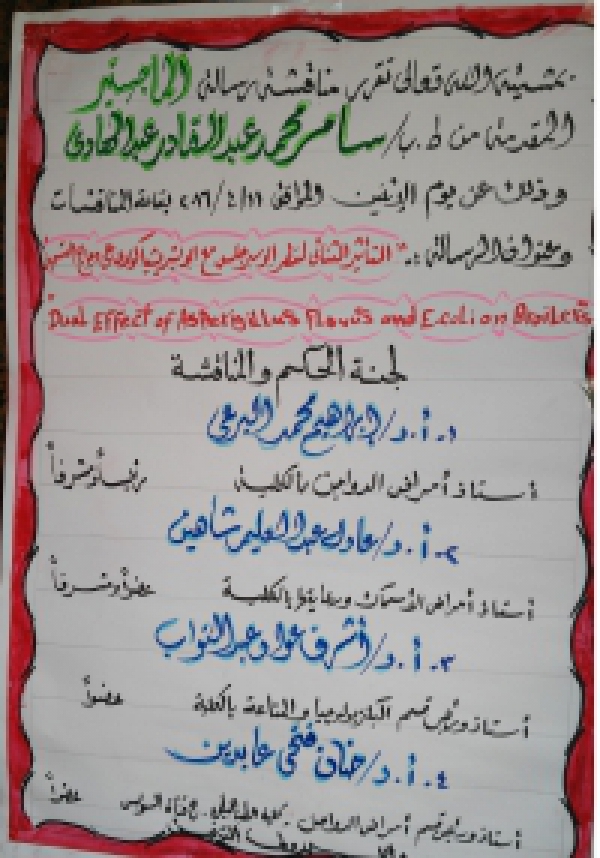 بمشيئة الله تعالى تقرر مناقشة رسالة الماجستير
المقدمة من ط.ب/ سامر محمد عبدالقادر عبدالهادى
وذلك عن يوم الإثنين الموافق بقاعة المناقشات
وعنوان الرسالة :. "التأثير الثنائى لفطر
Dual Effect of Aspergillus Flavus and E.coli on Broilers
لجنة الحكم والمناقشة
١. أ.د/ إبراهيم محمد البرعى
أستاذ أمراض الدواجن بالكلية رئيساً ومشرفاً
٢. أ.د/ عادل عبدالعليم شاهين
أستاذ أمراض الأسماك ورعايتها بالكلية عضواً ومشرفاً
٣. أ.د/ أشرف عواد عبدالتواب
أستاذ ورئيس قسم البكتريولوجيا والمناعة بالكلية عضواً
٤. أ.د/ حنان فتحى عابدين
أستاذ ورئيس قسم أمراض الدواجن . كلية طب بيطرى . ج قناة السويس عضواً